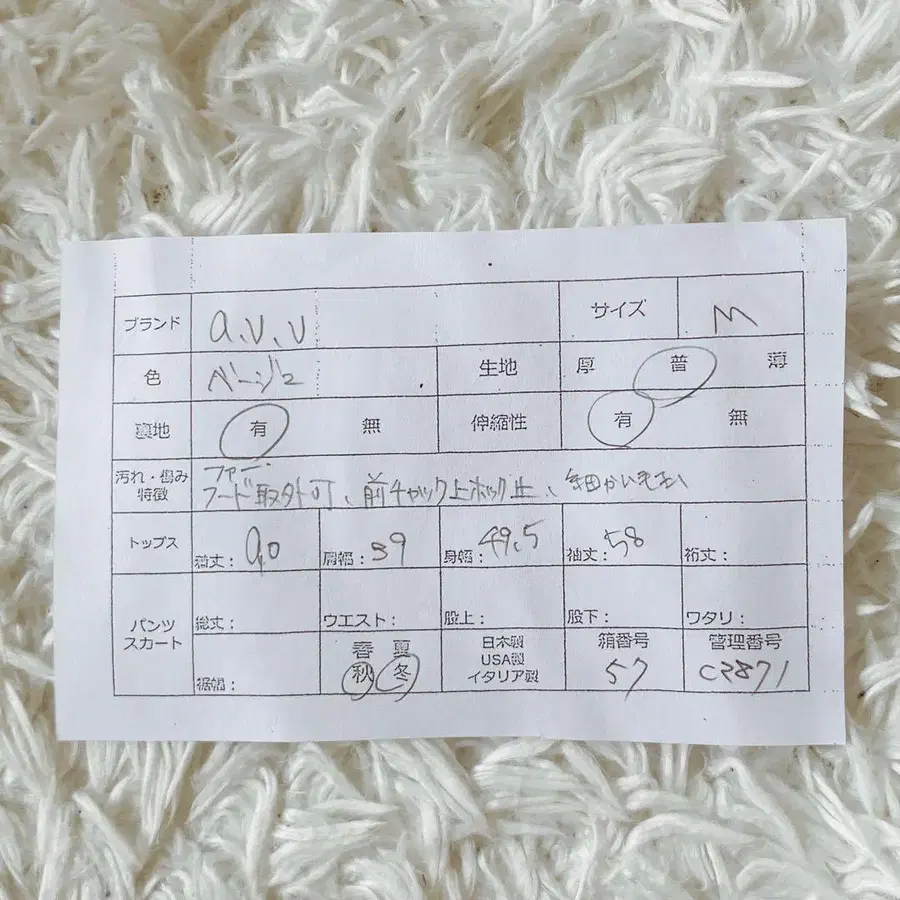 ブランド a.v.v サイズ M
色 ベージュ 生地 厚 普 薄
裏地 有 無 伸縮性 有 無
汚れ・傷み
特徴
ファー、
フード取外可、前チャック上ホック止、細かい毛玉
トップス 着丈： 90 肩幅：39 身幅：49.5 袖丈：58 裄丈：
パンツ
スカート
総丈： ウエスト： 股上： 股下： ワタリ：
裾幅：
春 夏
秋 冬
日本製
USA製
イタリア製
箱番号
57
管理番号
C2871